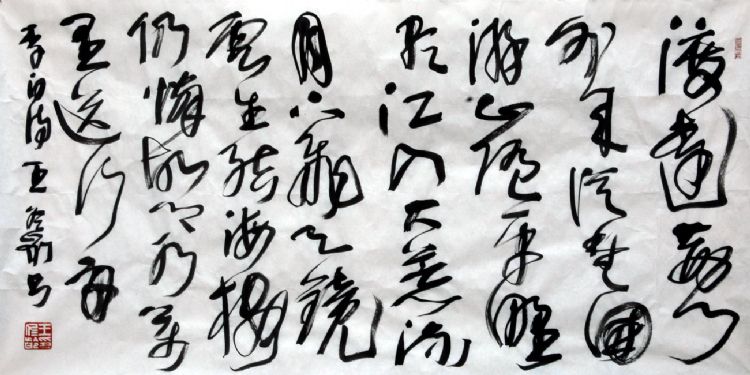 渡遠荆門
外来從楚國
游山随平野
尽江入大荒流
月下飛天鏡
雲生结海樓
仍憐故乡水万
里送行舟
李白诗 王 书